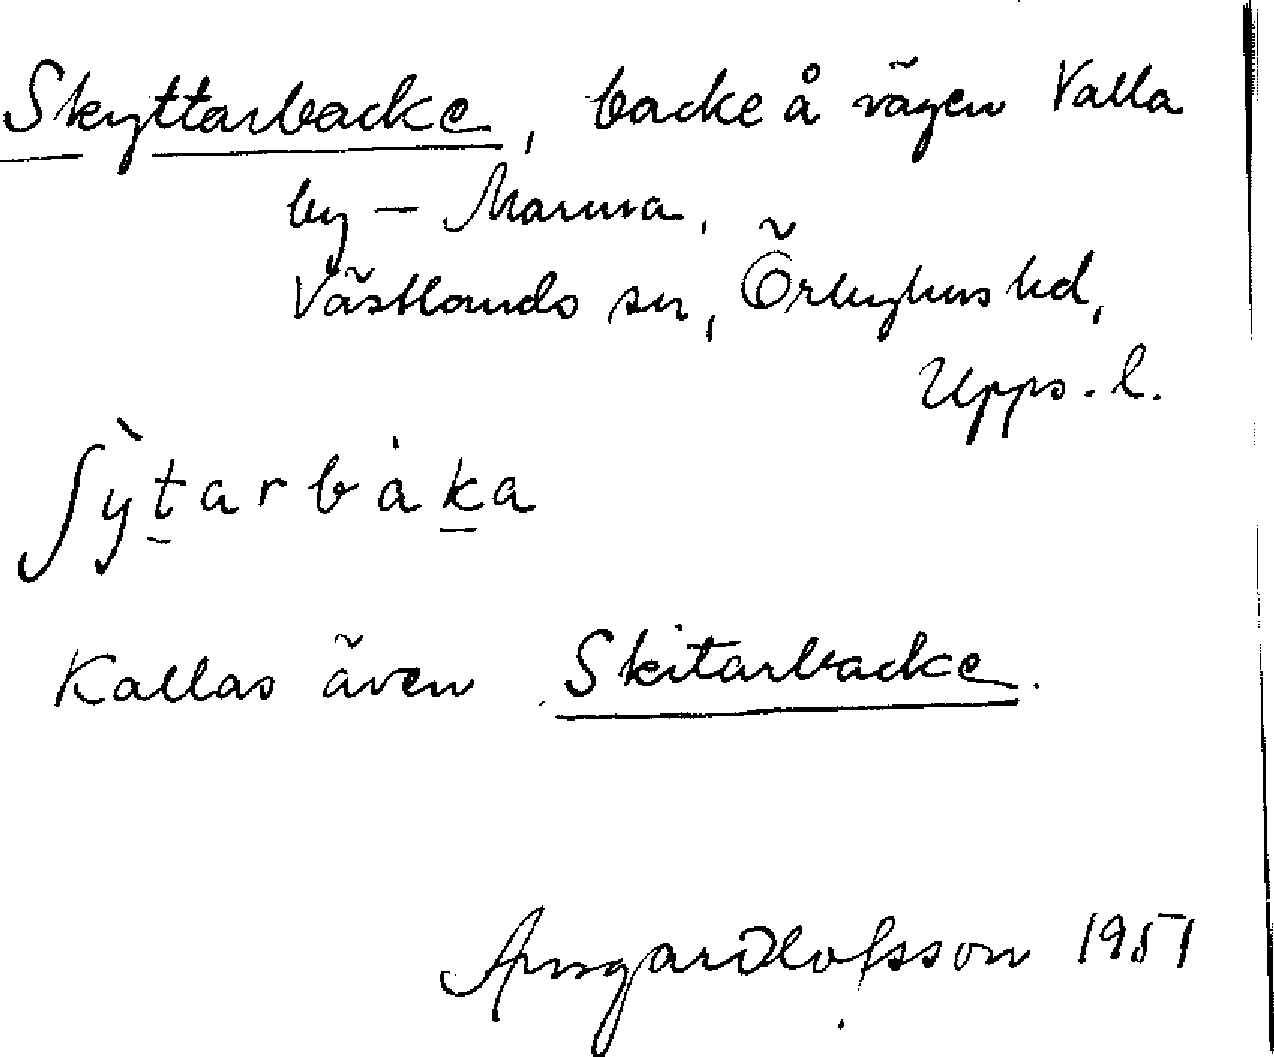 Skyttarbacke, backe å vägen Valla
by – Marma,
Västlands sn, Örbyhus hd,
Upps. l.
ʃỳtarbàka
Kallas även Skitarbacke.
Ansgar Olofsson 1951